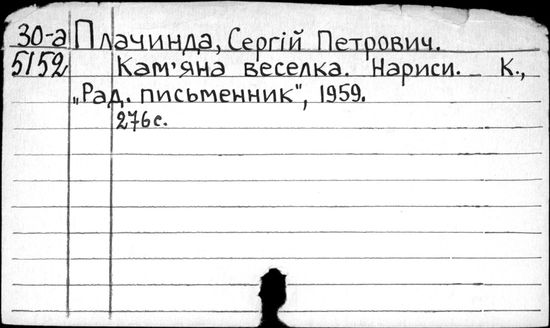 30-а Плачинда, Сергій Петрович.
5152 Кам'яна веселка. Нариси. К.,
„Рад. письменник", 1959.
276с.